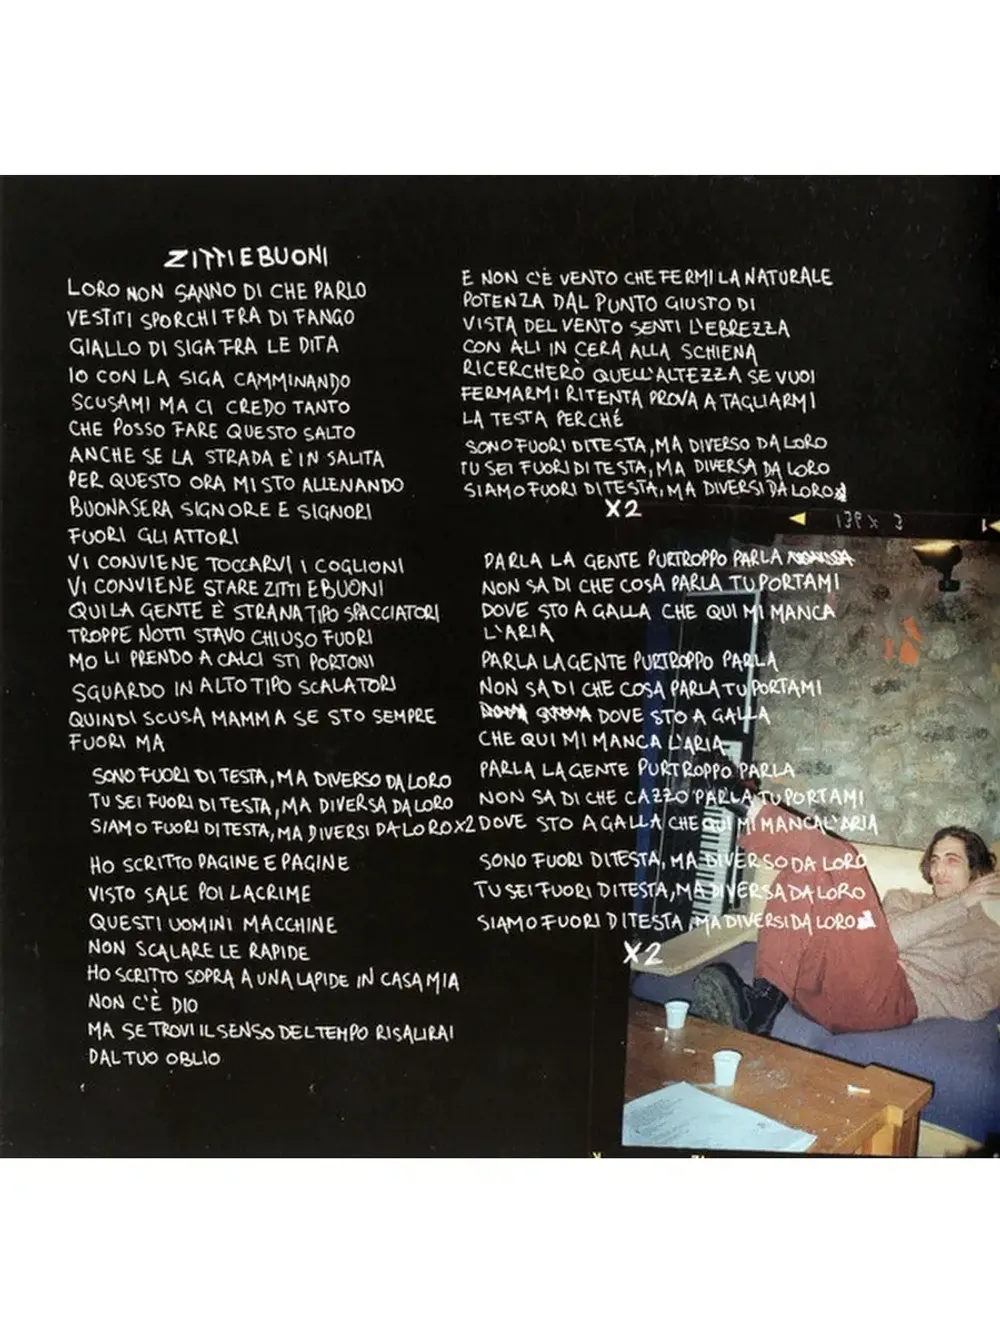 ZITTI E BUONI
LORO NON SANNO DI CHE PARLO
VESTITI SPORCHI FRA DI FANGO
GIALLO DI SIGA FRA LE DITA
IO CON LA SIGA CAMMINANDO
SCUSAMI MA CI CREDO TANTO
CHE POSSO FARE QUESTO SALTO
ANCHE SE LA STRADA È IN SALITA
PER QUESTO ORA MI STO ALLENANDO
BUONASERA SIGNORE E SIGNORI
FUORI GLI ATTORI
VI CONVIENE TOCCARVI I COGLIONI
VI CONVIENE STARE ZITTI E BUONI
QUI LA GENTE È STRANA TIPO SPACCIATORI
TROPPE NOTTI STAVO CHIUSO FUORI
MO LI PRENDO A CALCI STI PORTONI
SGUARDO IN ALTO TIPO SCALATORI
QUINDI SCUSA MAMMA SE STO SEMPRE
FUORI MA
SONO FUORI DI TESTA, MA DIVERSO DA LORO
TU SEI FUORI DI TESTA, MA DIVERSA DA LORO
SIAMO FUORI DI TESTA, MA DIVERSI DA LORO X2
HO SCRITTO PAGINE E PAGINE
VISTO SALE POI LACRIME
QUESTI UOMINI MACCHINE
NON SCALARE LE RAPIDE
HO SCRITTO SOPRA A UNA LAPIDE IN CASA MIA
NON C'È DIO
MA SE TROVI IL SENSO DEL TEMPO RISALIRAI
DAL TUO OBLIO
E NON C'È VENTO CHE FERMI LA NATURALE
POTENZA DAL PUNTO GIUSTO DI
VISTA DEL VENTO SENTI L'EBREZZA
CON ALI IN CERA ALLA SCHIENA
RICERCHERÒ QUELL'ALTEZZA SE VUOI
FERMARMI RITENTA PROVA A TAGLIARMI
LA TESTA PERCHÉ
SONO FUORI DI TESTA, MA DIVERSO DA LORO
TU SEI FUORI DI TESTA, MA DIVERSA DA LORO
SIAMO FUORI DI TESTA, MA DIVERSI DA LORO
X2
PARLA LA GENTE PURTROPPO PARLA
NON SA DI CHE COSA PARLA TU PORTAMI
DOVE STO A GALLA CHE QUI MI MANCA
L'ARIA
PARLA LA GENTE PURTROPPO PARLA
NON SA DI CHE COSA PARLA TU PORTAMI
DOVE STO A GALLA
CHE QUI MI MANCA L'ARIA
PARLA LA GENTE PURTROPPO PARLA
NON SA DI CHE CAZZO PARLA TU PORTAMI
DOVE STO A GALLA CHE QUI MI MANCA L'ARIA
SONO FUORI DI TESTA, MA DIVERSO DA LORO
TU SEI FUORI DI TESTA, MA DIVERSA DA LORO
SIAMO FUORI DI TESTA, MA DIVERSI DA LORO
X2